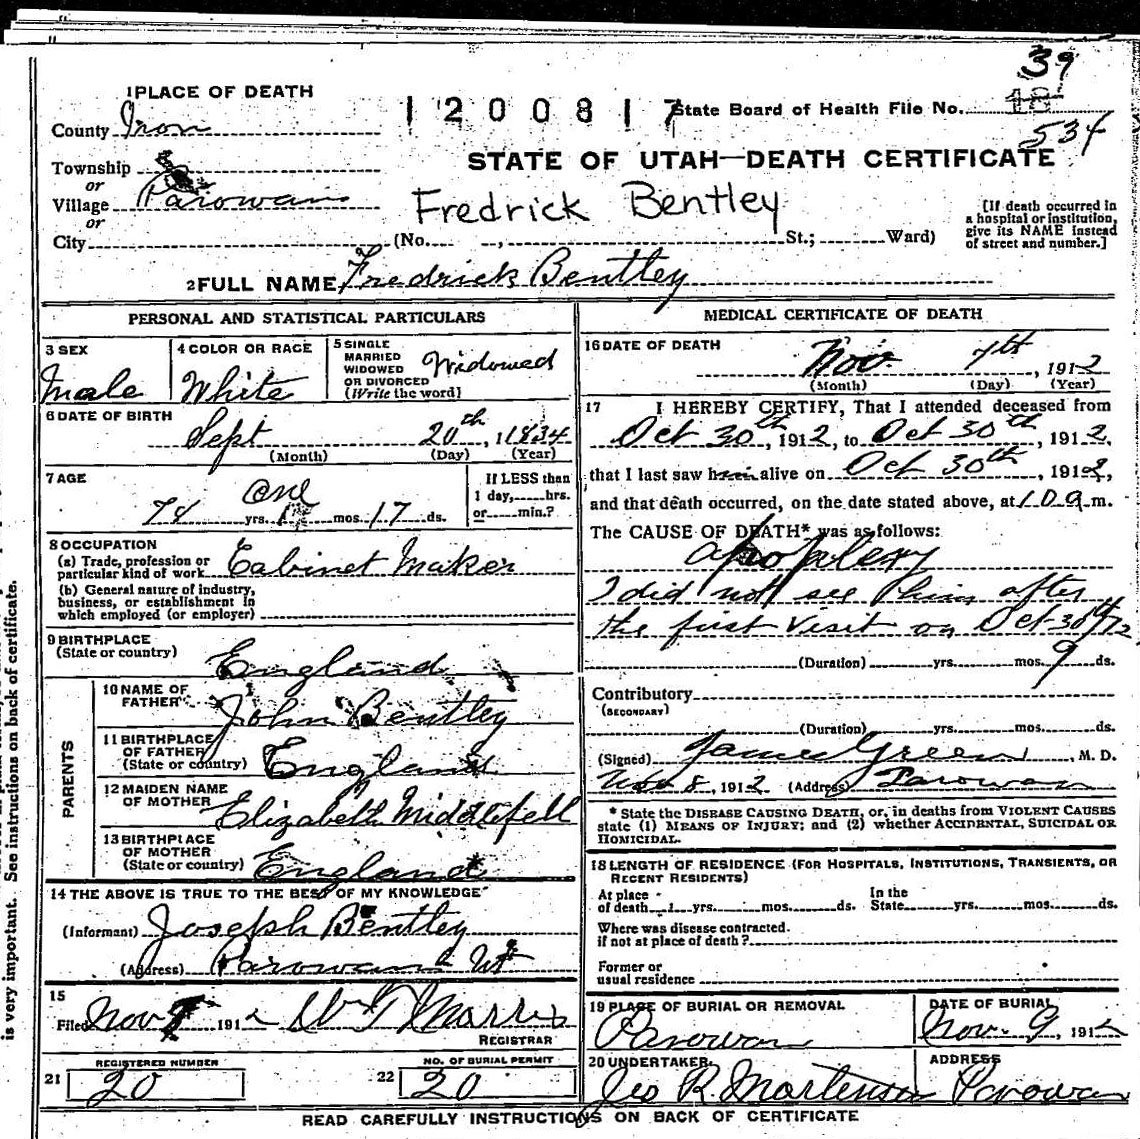 39
1 PLACE OF DEATH
1200817 State Board of Health File No. 18
534
County Iron
STATE OF UTAH—DEATH CERTIFICATE
Township
or
Village Parowan
Fredrick Bentley
or
City (No. , St.; Ward)
[If death occurred in a hospital or institution, give its NAME instead of street and number.]
2 FULL NAME Fredrick Bentley
PERSONAL AND STATISTICAL PARTICULARS
3 SEX
Male
4 COLOR OR RACE
White
5 SINGLE
MARRIED
WIDOWED
OR DIVORCED
(Write the word)
Widowed
6 DATE OF BIRTH
Sept 20th, 1834
(Month) (Day) (Year)
7 AGE
one
78 yrs. 1 mos. 17 ds.
If LESS than
1 day, hrs.
or min.?
8 OCCUPATION
(a) Trade, profession or
particular kind of work Cabinet Maker
(b) General nature of industry,
business, or establishment in
which employed (or employer)
9 BIRTHPLACE
(State or country)
England
PARENTS
10 NAME OF
FATHER
John Bentley
11 BIRTHPLACE
OF FATHER
(State or country) England
12 MAIDEN NAME
OF MOTHER
Elizabeth Middlefell
13 BIRTHPLACE
OF MOTHER
(State or country) England
14 THE ABOVE IS TRUE TO THE BEST OF MY KNOWLEDGE
(Informant) Joseph Bentley
(Address) Parowan Ut
15
Filed Nov 1912 Wm Morris
REGISTRAR
REGISTERED NUMBER
21 20
NO. OF BURIAL PERMIT
22 20
MEDICAL CERTIFICATE OF DEATH
16 DATE OF DEATH
Nov. 7th, 1912
(Month) (Day) (Year)
17 I HEREBY CERTIFY, That I attended deceased from
Oct 30th, 1912, to Oct 30th, 1912,
that I last saw him alive on Oct 30th, 1912,
and that death occurred, on the date stated above, at 10 a m.
The CAUSE OF DEATH* was as follows:
apoplexy
I did not see him after
the first visit on Oct 30th/12
(Duration) yrs. mos. 9 ds.
Contributory
(SECONDARY)
(Duration) yrs. mos. ds.
(Signed) James Green, M. D.
Nov 8, 1912 (Address) Parowan
* State the DISEASE CAUSING DEATH, or, in deaths from VIOLENT CAUSES
state (1) MEANS OF INJURY; and (2) whether ACCIDENTAL, SUICIDAL OR
HOMICIDAL.
18 LENGTH OF RESIDENCE (FOR HOSPITALS, INSTITUTIONS, TRANSIENTS, OR
RECENT RESIDENTS)
At place
of death yrs. mos. ds.
In the
State yrs. mos. ds.
Where was disease contracted.
if not at place of death?
Former or
usual residence
19 PLACE OF BURIAL OR REMOVAL
Parowan
DATE OF BURIAL
Nov. 9, 1912
20 UNDERTAKER
Geo R. Mortenson
ADDRESS
Parowan
READ CAREFULLY INSTRUCTIONS ON BACK OF CERTIFICATE
is very important. See instructions on back of certificate.